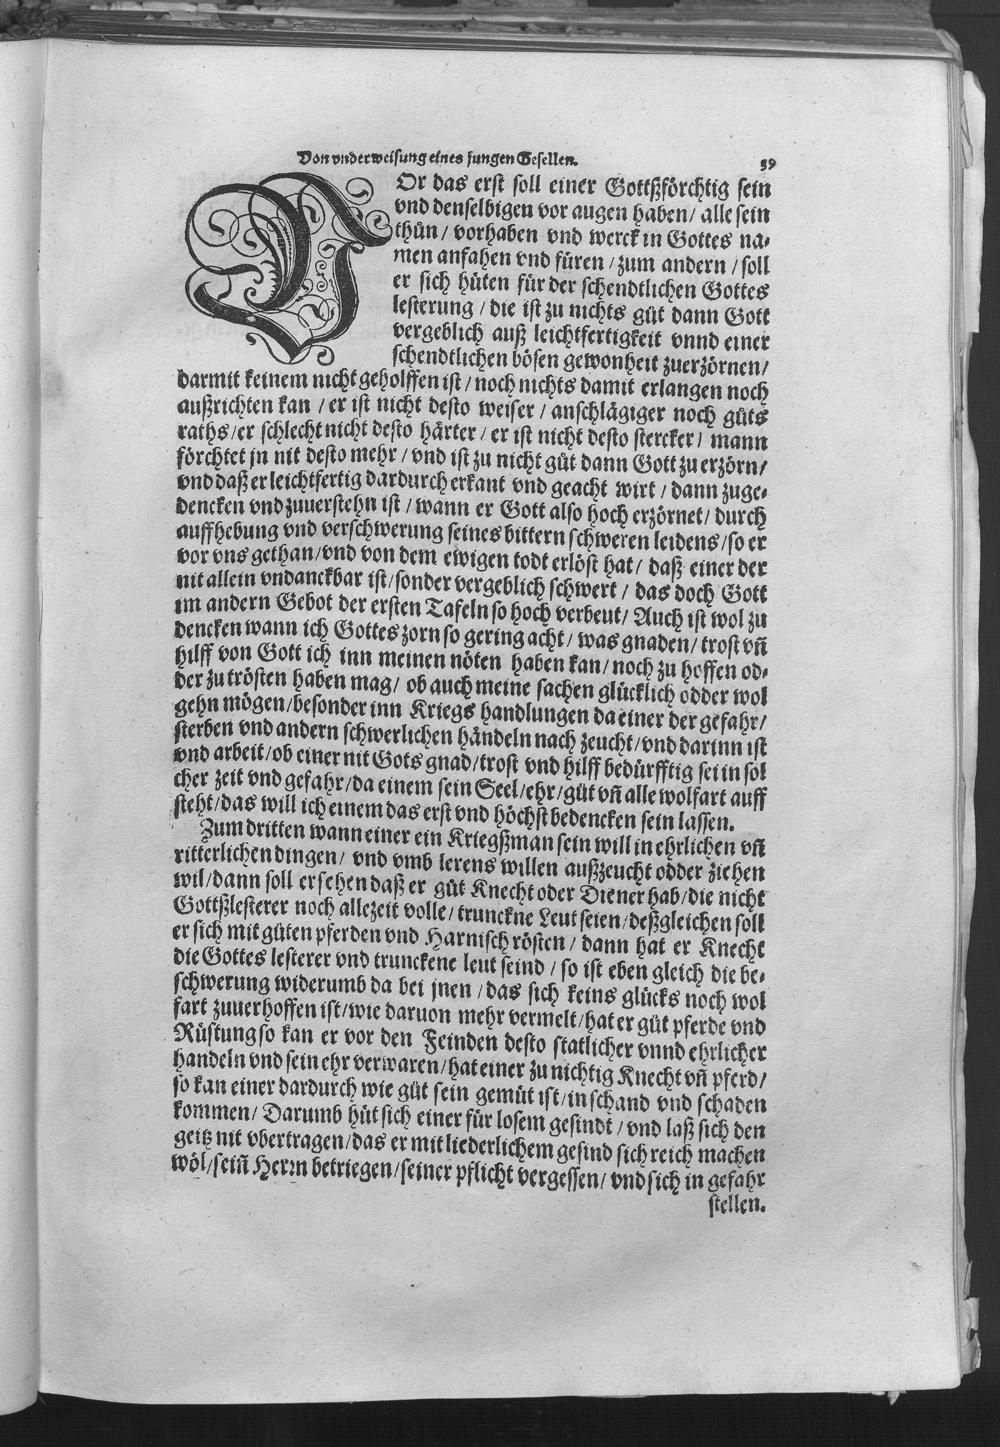 Von vnderweisung eines jungen Gesellen. 39
VOr das erst soll einer Gottßförchtig sein
vnd denselbigen vor augen haben / alle sein
thůn / vorhaben vnd werck in Gottes na-
men anfahen vnd füren / zum andern / soll
er sich hüten für der schendtlichen Gottes
lesterung / die ist zu nichts gůt dann Gott
vergeblich auß leichtfertigkeit vnnd einer
schendtlichen bösen gewonheit zuerzörnen /
darmit keinem nicht geholffen ist / noch nichts damit erlangen noch
außrichten kan / er ist nicht desto weiser / anschlägiger noch gůts
raths / er schlecht nicht desto härter / er ist nicht desto stercker / mann
förchtet jn nit desto mehr / vnd ist zu nicht gůt dann Gott zu erzörn /
vnd daß er leichtfertig dardurch erkant vnd geacht wirt / dann zuge-
dencken vnd zuuerstehn ist / wann er Gott also hoch erzörnet / durch
auffhebung vnd verschwerung seines bittern schweren leidens / so er
vor vns gethan / vnd von dem ewigen todt erlöst hat / daß einer der
nit allein vndanckbar ist / sonder vergeblich schwert / das doch Gott
im andern Gebot der ersten Tafeln so hoch verbeut / Auch ist wol zu
dencken wann ich Gottes zorn so gering acht / was gnaden / trost vñ
hilff von Gott ich inn meinen nöten haben kan / noch zu hoffen od-
der zu trösten haben mag / ob auch meine sachen glücklich odder wol
gehn mögen / besonder inn Kriegs handlungen da einer der gefahr /
sterben vnd andern schwerlichen händeln nach zeucht / vnd darinn ist
vnd arbeit / ob einer nit Gots gnad / trost vnd hilff bedürfftig sei in sol
cher zeit vnd gefahr / da einem sein Seel / ehr / gůt vñ alle wolfart auff
steht / das will ich einem das erst vnd höchst bedencken sein lassen.
Zum dritten wann einer ein Kriegßman sein will in ehrlichen vñ
ritterlichen dingen / vnd vmb lerens willen außzeucht odder ziehen
wil / dann soll er sehen daß er gůt Knecht oder Diener hab / die nicht
Gottßlesterer noch allezeit volle / trunckne Leut seien / deßgleichen soll
er sich mit gůten pferden vnd Harnisch rösten / dann hat er Knecht
die Gottes lesterer vnd trunckene leut seind / so ist eben gleich die be-
schwerung widerumb da bei jnen / das sich keins glücks noch wol
fart zuuerhoffen ist / wie daruon mehr vermelt / hat er gůt pferde vnd
Rüstung so kan er vor den Feinden desto statlicher vnnd ehrlicher
handeln vnd sein ehr verwaren / hat einer zu nichtig Knecht vñ pferd /
so kan einer dardurch wie gůt sein gemüt ist / in schand vnd schaden
kommen / Darumb hüt sich einer für losem gesindt / vnd laß sich den
geitz nit vbertragen / das er mit liederlichem gesind sich reich machen
wöl / seiñ Herrn betriegen / seiner pflicht vergessen / vnd sich in gefahr
stellen.